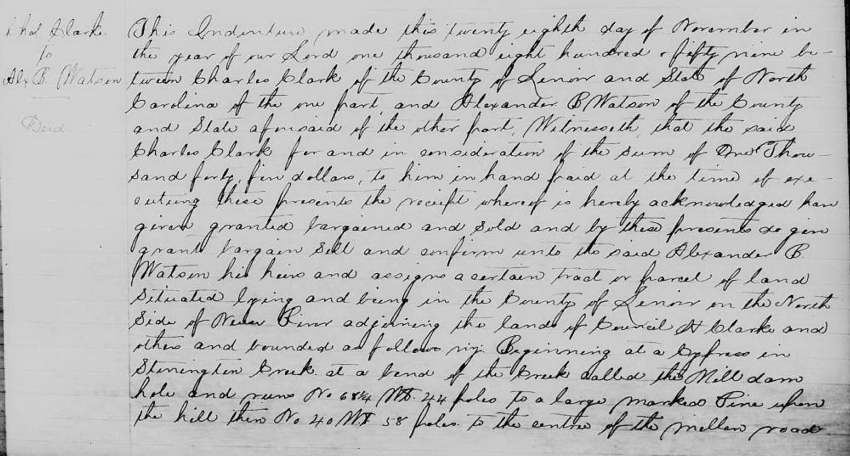 Chas Clark
to
Alx B Watson
Deed
This Indenture made this twenty eighth day of November in
the year of our Lord one thousand eight hundred & fifty nine be-
tween Charles Clark of the County of Lenoir and State of North
Carolina of the one part, and Alexander B. Watson of the County
and State aforesaid of the other part, Witnesseth, that the said
Charles Clark for and in consideration of the sum of One Thou-
sand forty five dollars, to him in hand paid at the time of exe-
cuting these presents the receipt whereof is hereby acknowledged han
given granted bargained and sold and by these presents do give
grant bargain Sell and confirm unto the said Alexander B.
Watson his heirs and assigns a certain tract or parcel of land
Situated lying and being in the County of Lenoir on the North
Side of Neuse River adjoining the lands of Council H Clark and
others and bounded as follows viz. Beginning at a Cypress in
Stonington Creek at a bend of the Creek called the Mill dam
hole and runs No 68¼ Wt. 44 poles to a large marked Pine upon
the hill then No 40 Wt 58 poles to the centre of the road